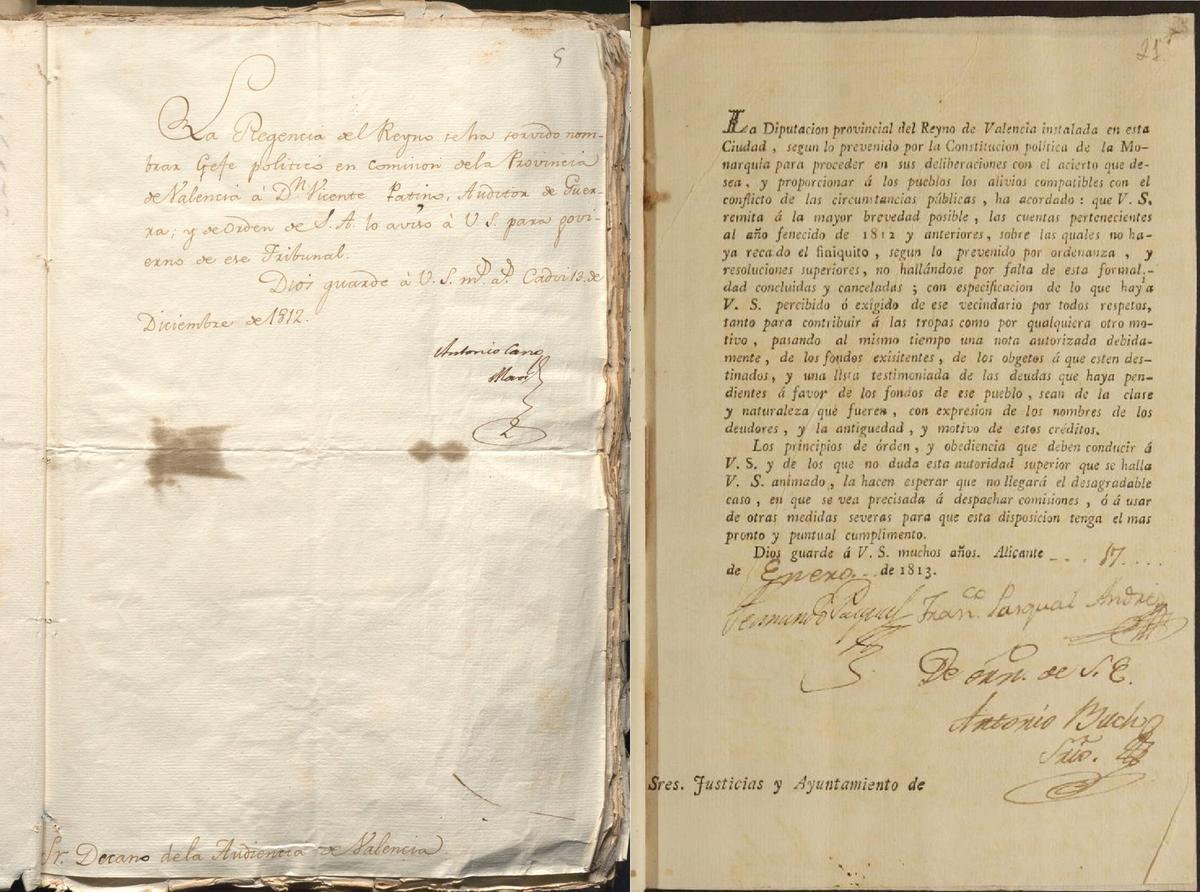 5
La Regencia del Reyno se ha servido nom-
brar Gefe politico en comision de la Provincia
de Valencia à Dn. Vicente Patiño, Auditor de Guer-
ra; y de Orden de S. A. lo aviso à V. S. para govi-
erno de ese Tribunal.
Dios guarde à V. S. ms. as. Cadiz 13 de
Diciembre de 1812.
Antonio Cano
Manl.
Sr. Decano de la Audiencia de Valencia
21
La Diputacion provincial del Reyno de Valencia instalada en esta
Ciudad, segun lo prevenido por la Constitucion política de la Mo-
narquía para proceder en sus deliberaciones con el acierto que de-
sea, y proporcionar á los pueblos los alivios compatibles con el
conflicto de las circunstancias públicas, ha acordado: que V. S.
remita á la mayor brevedad posible, las cuentas pertenecientes
al año fenecido de 1812 y anteriores, sobre las quales no ha-
ya recado el finiquito, segun lo prevenido por ordenanza, y
resoluciones superiores, no hallándose por falta de esta formal-
dad concluidas y canceladas; con especificacion de lo que haya
V. S. percibido ó exîgido de ese vecindario por todos respetos,
tanto para contribuir á las tropas como por qualquiera otro mo-
tivo, pasando al mismo tiempo una nota autorizada debida-
mente, de los fondos exisitentes, de los obgetos á que esten des-
tinados, y una lista testimoniada de las deudas que haya pen-
dientes á favor de los fondos de ese pueblo, sean de la clase
y naturaleza que fueren, con expresion de los nombres de los
deudores, y la antiguedad, y motivo de estos créditos.
Los principios de órden, y obediencia que deben conducir á
V. S. y de los que no duda esta autoridad superior que se halla
V. S. animado, la hacen esperar que no llegará el desagradable
caso, en que se vea precisada á despachar comisiones, ó á usar
de otras medidas severas para que esta disposicion tenga el mas
pronto y puntual cumplimento.
Dios guarde á V. S. muchos años. Alicante .... 17 ....
de Enero .... de 1813.
Fernando Pasqual Franco. Pasqual Andrés
De órn. de S. E.
Antonio Buch
Srio.
Sres. Justicias y Ayuntamiento de